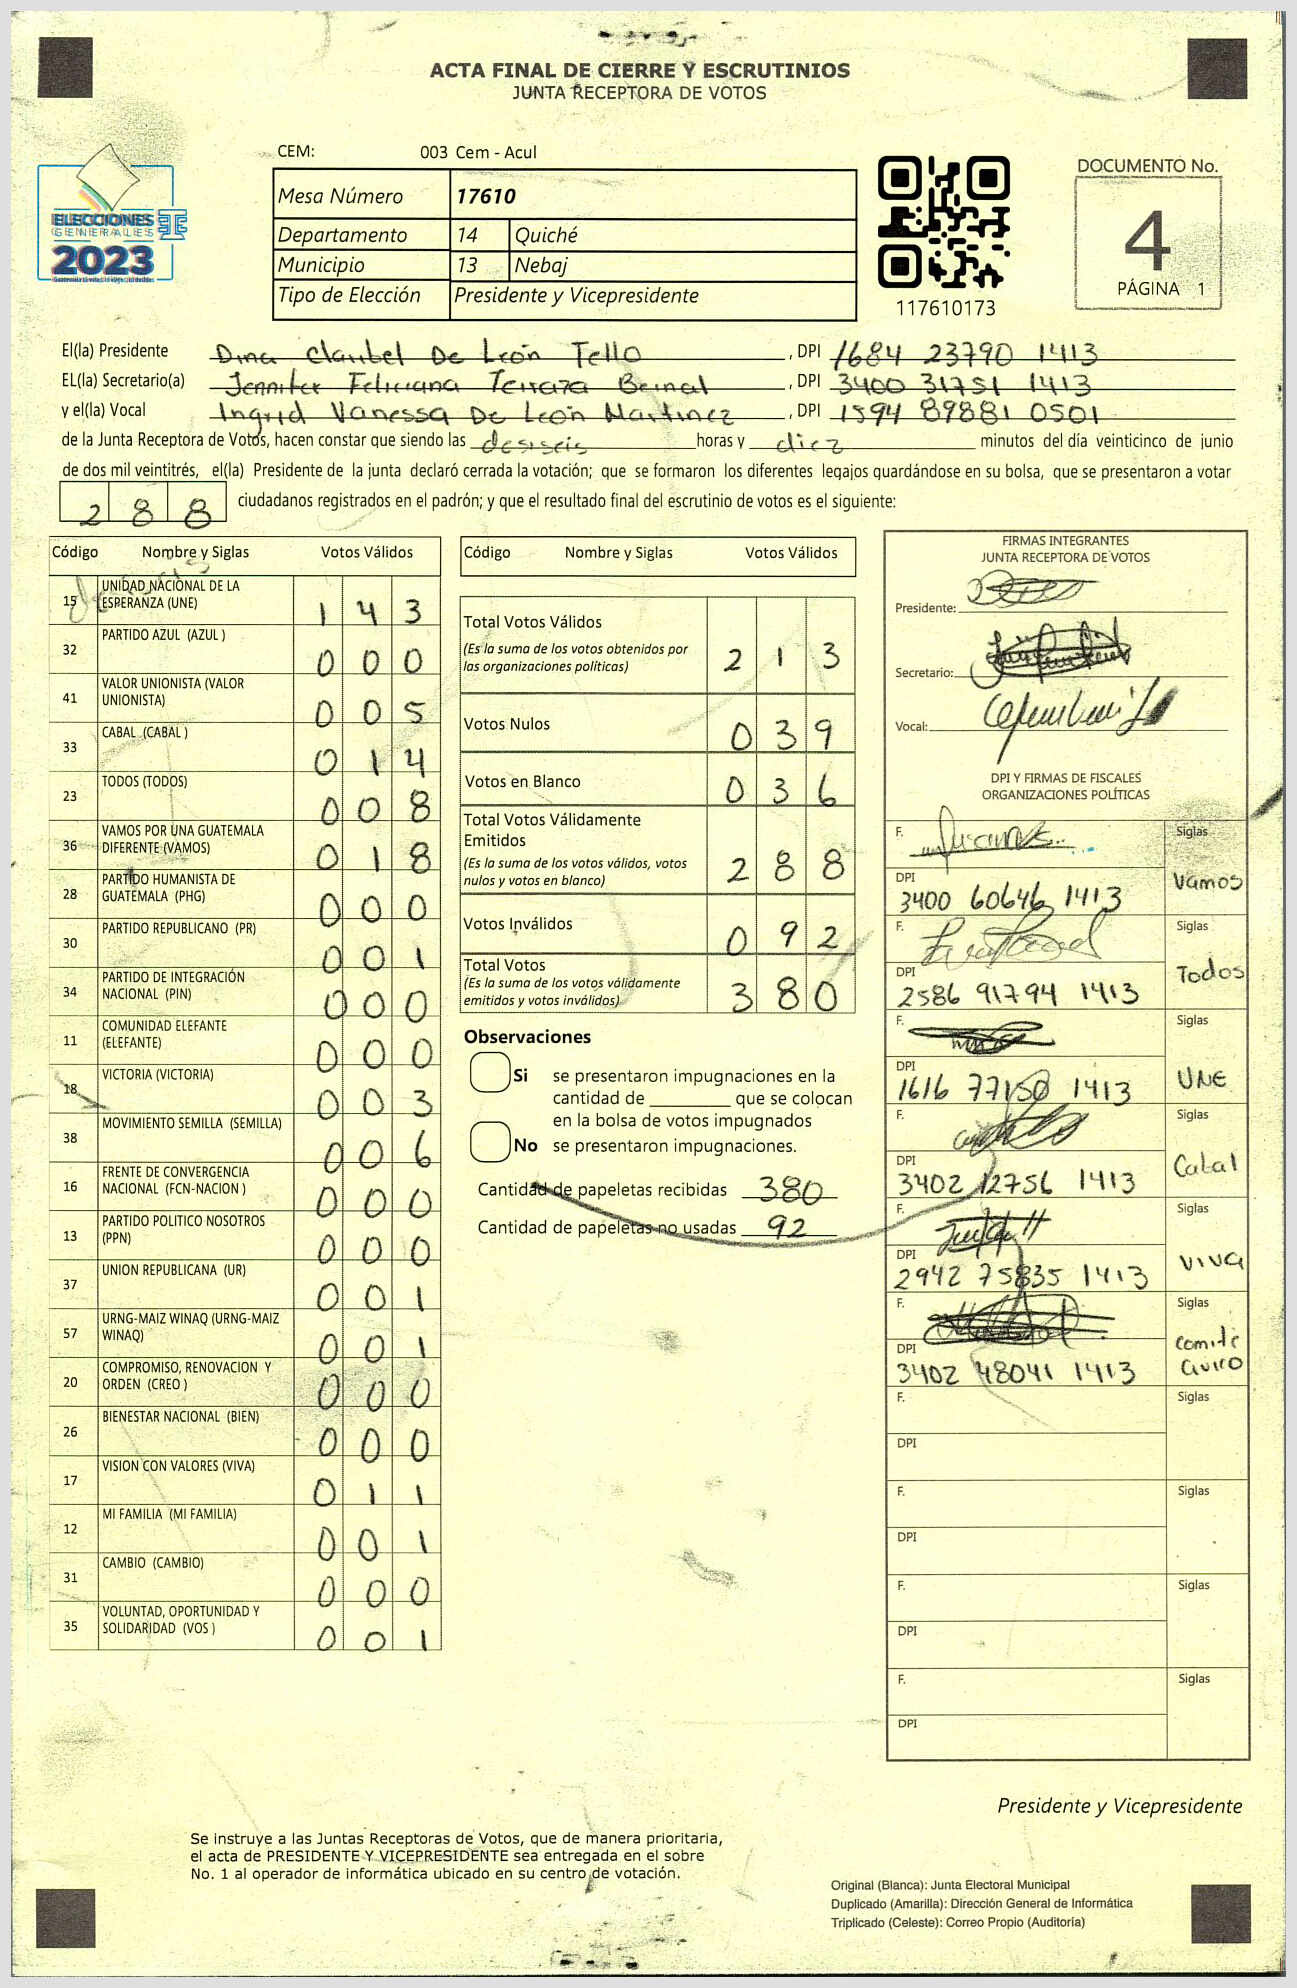 ACTA FINAL DE CIERRE Y ESCRUTINIOS
JUNTA RECEPTORA DE VOTOS
CEM: 003 Cem - Acul
ELECCIONES
GENERALES
2023
Mesa Número 17610
Departamento 14 Quiché
Municipio 13 Nebaj
Tipo de Elección Presidente y Vicepresidente
117610173
DOCUMENTO No.
4
PÁGINA 1
El(la) Presidente Dina Claribel De León Tello, DPI 1684 23790 1413
EL(la) Secretario(a) Jennifer Feliciana Terraza Bernal, DPI 3400 31751 1413
y el(la) Vocal Ingrid Vanessa De León Martinez, DPI 1594 89881 0501
de la Junta Receptora de Votos, hacen constar que siendo las desiseis horas y diez minutos del día veinticinco de junio
de dos mil veintitrés, el(la) Presidente de la junta declaró cerrada la votación; que se formaron los diferentes legajos quardándose en su bolsa, que se presentaron a votar
288 ciudadanos registrados en el padrón; y que el resultado final del escrutinio de votos es el siguiente:
Código Nombre y Siglas Votos Válidos
15 UNIDAD NACIONAL DE LA ESPERANZA (UNE) 143
32 PARTIDO AZUL (AZUL ) 000
41 VALOR UNIONISTA (VALOR UNIONISTA) 005
33 CABAL (CABAL ) 014
23 TODOS (TODOS) 008
36 VAMOS POR UNA GUATEMALA DIFERENTE (VAMOS) 018
28 PARTIDO HUMANISTA DE GUATEMALA (PHG) 000
30 PARTIDO REPUBLICANO (PR) 001
34 PARTIDO DE INTEGRACIÓN NACIONAL (PIN) 000
11 COMUNIDAD ELEFANTE (ELEFANTE) 000
18 VICTORIA (VICTORIA) 003
38 MOVIMIENTO SEMILLA (SEMILLA) 006
16 FRENTE DE CONVERGENCIA NACIONAL (FCN-NACION ) 000
13 PARTIDO POLITICO NOSOTROS (PPN) 000
37 UNION REPUBLICANA (UR) 001
57 URNG-MAIZ WINAQ (URNG-MAIZ WINAQ) 001
20 COMPROMISO, RENOVACION Y ORDEN (CREO ) 000
26 BIENESTAR NACIONAL (BIEN) 000
17 VISION CON VALORES (VIVA) 011
12 MI FAMILIA (MI FAMILIA) 001
31 CAMBIO (CAMBIO) 000
35 VOLUNTAD, OPORTUNIDAD Y SOLIDARIDAD (VOS ) 001
Código Nombre y Siglas Votos Válidos
Total Votos Válidos 213
(Es la suma de los votos obtenidos por
las organizaciones políticas)
Votos Nulos 039
Votos en Blanco 036
Total Votos Válidamente
Emitidos 288
(Es la suma de los votos válidos, votos
nulos y votos en blanco)
Votos Inválidos 092
Total Votos 380
(Es la suma de los votos válidamente
emitidos y votos inválidos)
Observaciones
Si se presentaron impugnaciones en la
cantidad de ________ que se colocan
en la bolsa de votos impugnados
No se presentaron impugnaciones.
Cantidad de papeletas recibidas 380
Cantidad de papeletas no usadas 92
FIRMAS INTEGRANTES
JUNTA RECEPTORA DE VOTOS
Presidente:
Secretario:
Vocal:
DPI Y FIRMAS DE FISCALES
ORGANIZACIONES POLÍTICAS
F. Siglas
DPI Vamos
3400 60646 1413
F. Siglas
DPI Todos
2586 91794 1413
F. Siglas
DPI UNE
1616 77150 1413
F. Siglas
DPI Cabal
3402 12756 1413
F. Siglas
DPI VIVA
2942 75835 1413
F. Siglas
DPI comite civico
3402 48041 1413
F. Siglas
DPI
F. Siglas
DPI
F. Siglas
DPI
F. Siglas
DPI
Presidente y Vicepresidente
Se instruye a las Juntas Receptoras de Votos, que de manera prioritaria,
el acta de PRESIDENTE Y VICEPRESIDENTE sea entregada en el sobre
No. 1 al operador de informática ubicado en su centro de votación.
Original (Blanca): Junta Electoral Municipal
Duplicado (Amarilla): Dirección General de Informática
Triplicado (Celeste): Correo Propio (Auditoría)